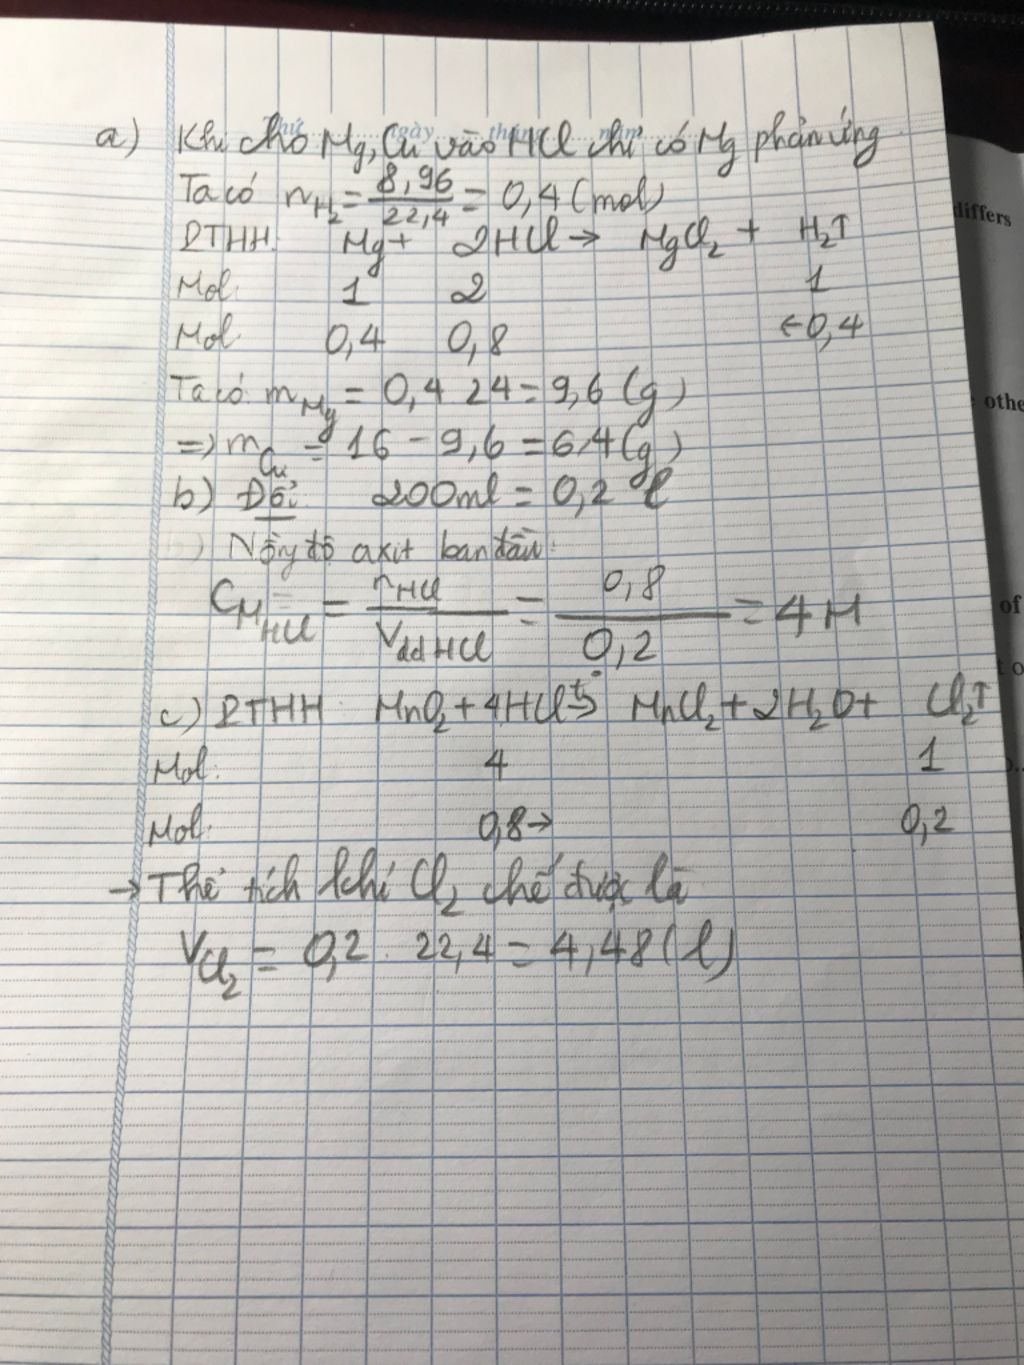 Thứ ngày tháng năm
a) Khi cho Mg, Cu vào HCl chỉ có Mg phản ứng
Ta có n H₂ = 8,96 / 22,4 = 0,4 (mol)
PTHH: Mg + 2HCl → MgCl₂ + H₂↑
Mol: 1 2 1
Mol: 0,4 0,8 ←0,4
Ta có: m Mg = 0,4 24 = 9,6 (g)
=> m Cu = 16 - 9,6 = 6,4 (g)
b) Đổi: 200ml = 0,2 l
Nồng độ axit ban đầu:
C M HCl = n HCl / V dd HCl = 0,8 / 0,2 = 4 M
c) PTHH: MnO₂ + 4HCl t° → MnCl₂ + 2H₂O + Cl₂↑
Mol: 4 1
Mol: 0,8→ 0,2
→ Thể tích khí Cl₂ chế được là
V Cl₂ = 0,2 . 22,4 = 4,48 (l)
differs
othe
of